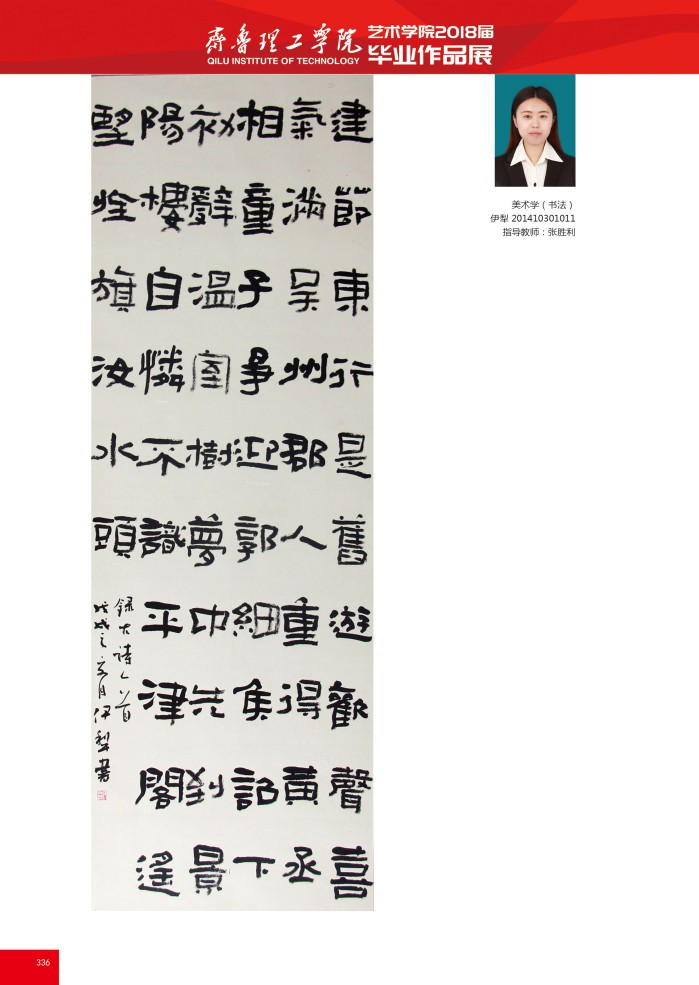 齊魯理工學院
QILU INSTITUTE OF TECHNOLOGY
艺术学院2018届
毕业作品展
建節東行是舊遊歡聲喜
氣滿吳州郡人重得黃丞
相童子爭迎郭細侯詔下
初辭溫室樹夢中先到景
陽樓自憐不識平津閣遙
望旌旗汝水頭
錄古詩一首
戊戌之夏月伊犁書
美术学（书法）
伊犁 201410301011
指导教师：张胜利
336